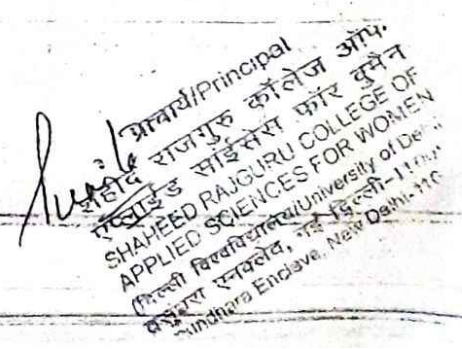 प्राचार्य/Principal
शहीद राजगुरु कॉलेज ऑफ
एप्लाईड साईंसेस फॉर वुमैन
SHAHEED RAJGURU COLLEGE OF
APPLIED SCIENCES FOR WOMEN
(दिल्ली विश्वविद्यालय/University of
वसुंधरा एनक्लेव, नई दिल्ली-110
Enclave, New Delhi-110